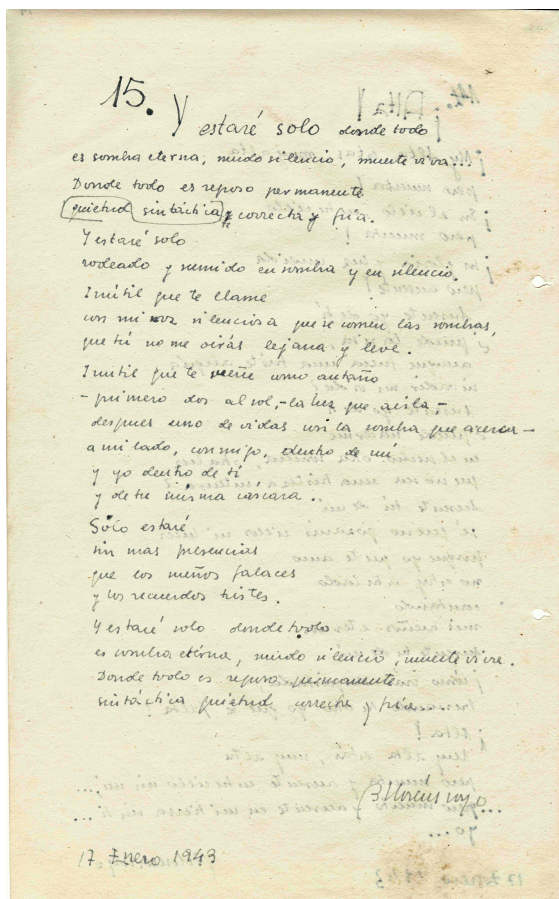 15.
Y estaré solo donde todo
es sombra eterna, mudo silencio, muerte viva...
Donde todo es reposo permanente
quietud sintáctica, correcta y fría.
Y estaré solo
rodeado y sumido en sombra y en silencio.
Inútil que te llame
con mi voz silenciosa que se comen las sombras,
que tú no me oirás lejana y leve.
Inutil que te sueñe como antaño
-primero dos al sol,-la luz que aisla-
despues uno de vidas con la sombra que acerca-
a mi lado, conmigo, dentro de mí
y yo dentro de tí
y de tu misma cáscara.
Sólo estaré
sin mas presencias
que los sueños falaces
y los recuerdos tristes.
Y estaré solo donde todo
es sombra eterna, mudo silencio, muerte viva.
Donde todo es reposo permanente
sintáctica quietud correcta y fría
17 Enero 1943